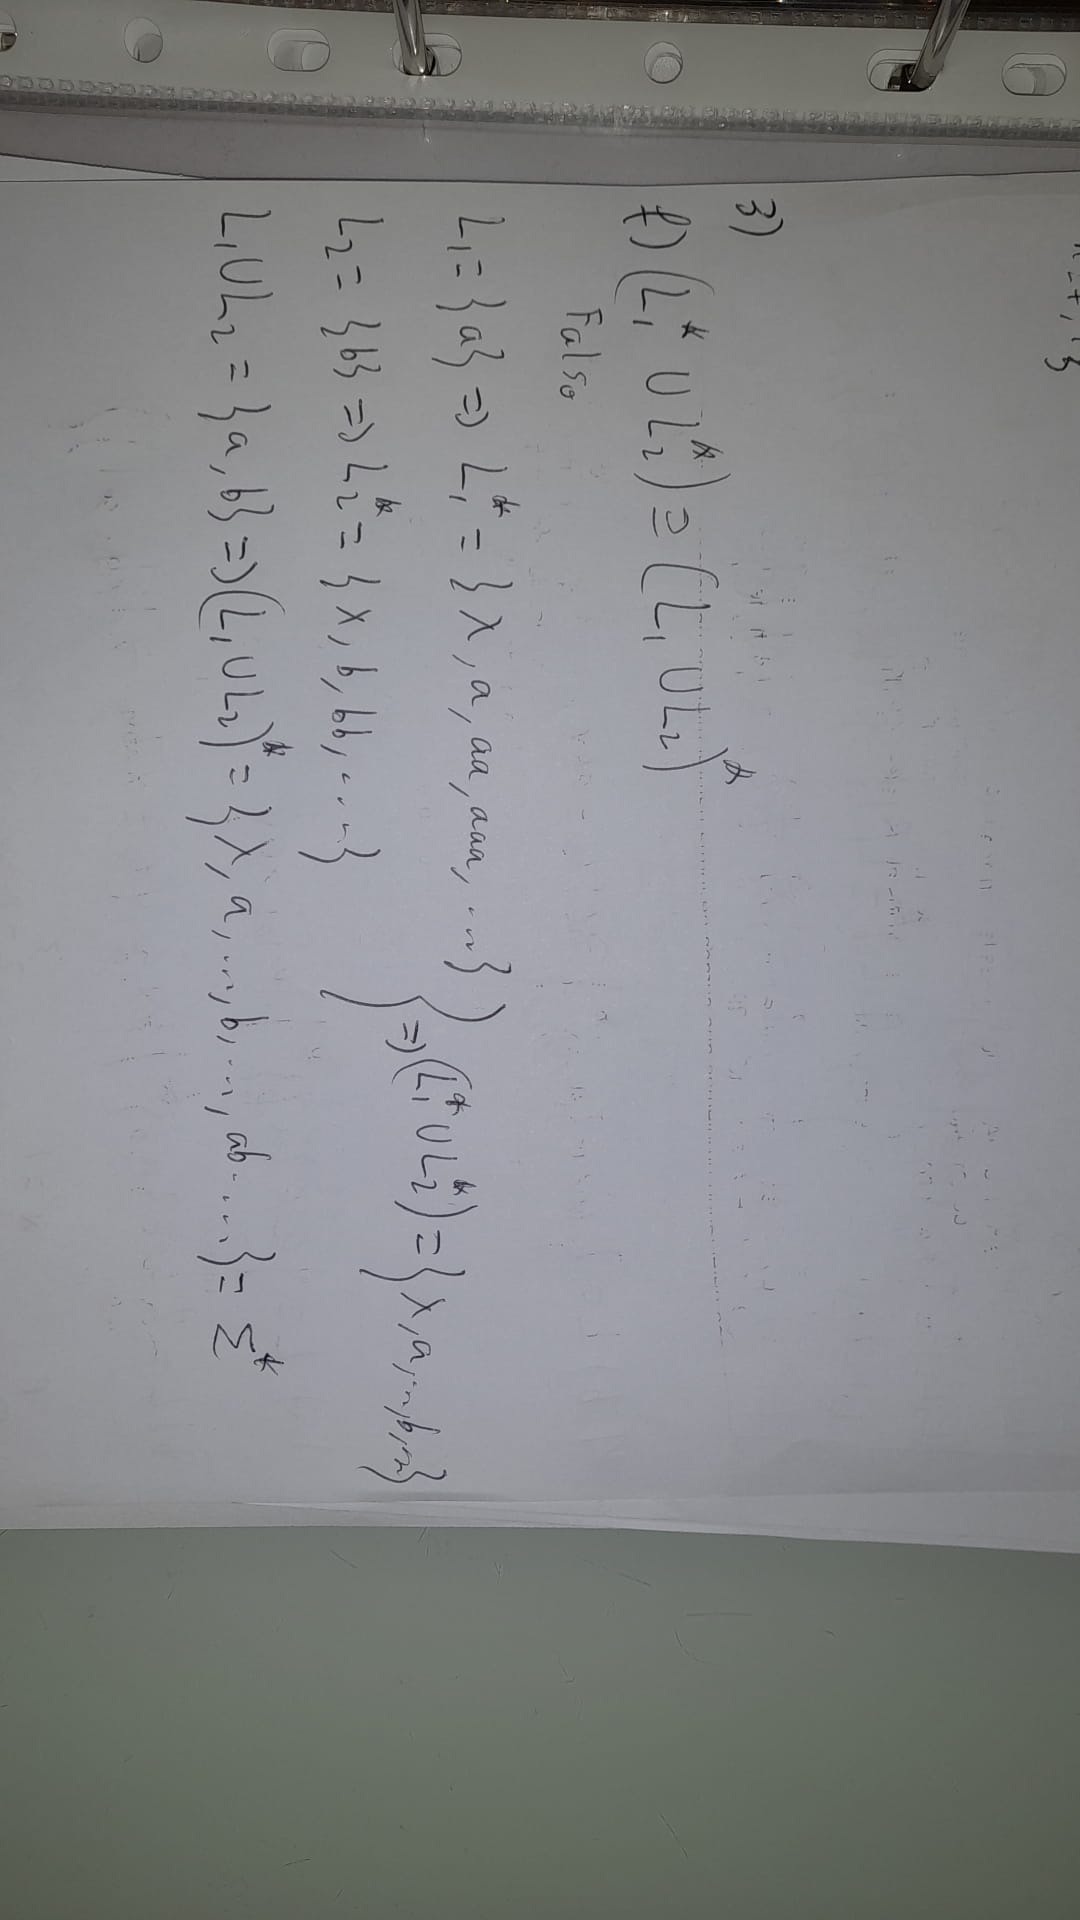 3)
f) (L₁* ∪ L₂*) ⊇ (L₁ ∪ L₂)*
Falso
L₁ = {a} => L₁* = {λ, a, aa, aaa, ...}
=> (L₁* ∪ L₂*) = {λ, a, ..., b, ...}
L₂ = {b} => L₂* = {λ, b, bb, ...}
L₁ ∪ L₂ = {a, b} => (L₁ ∪ L₂)* = {λ, a, ..., b, ..., ab ...} = Σ*